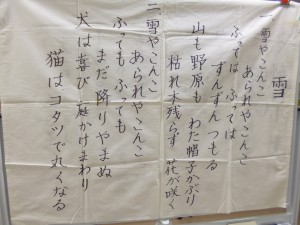 雪
一 雪やこんこ
あられやこんこ
ふっては ふっては
ずんずん つもる
山も野原も わた帽子かぶり
枯れ木残らず 花が咲く
二 雪やこんこ
あられやこんこ
ふっても ふっても
まだ降りやまぬ
犬は喜び 庭かけまわり
猫はコタツで丸くなる